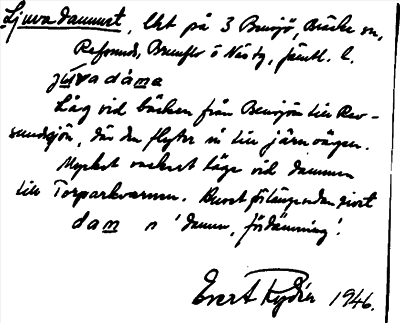 Ljuvadammet, Ukt på 3 Bensjö, Bräcke sn,
Refsunds, Brunflo o Näs tg, Jämtl. l.
jʉ́vadáma
Låg vid bäcken från Bensjön till Rev-
sundssjön, där den flyter in till järnvägen.
Mycket vackert läge vid dammen
till Torparkvarnen. Huvet förlängesedan rivet
dam n 'damm, fördämning'.
Evert Rydén 1946.